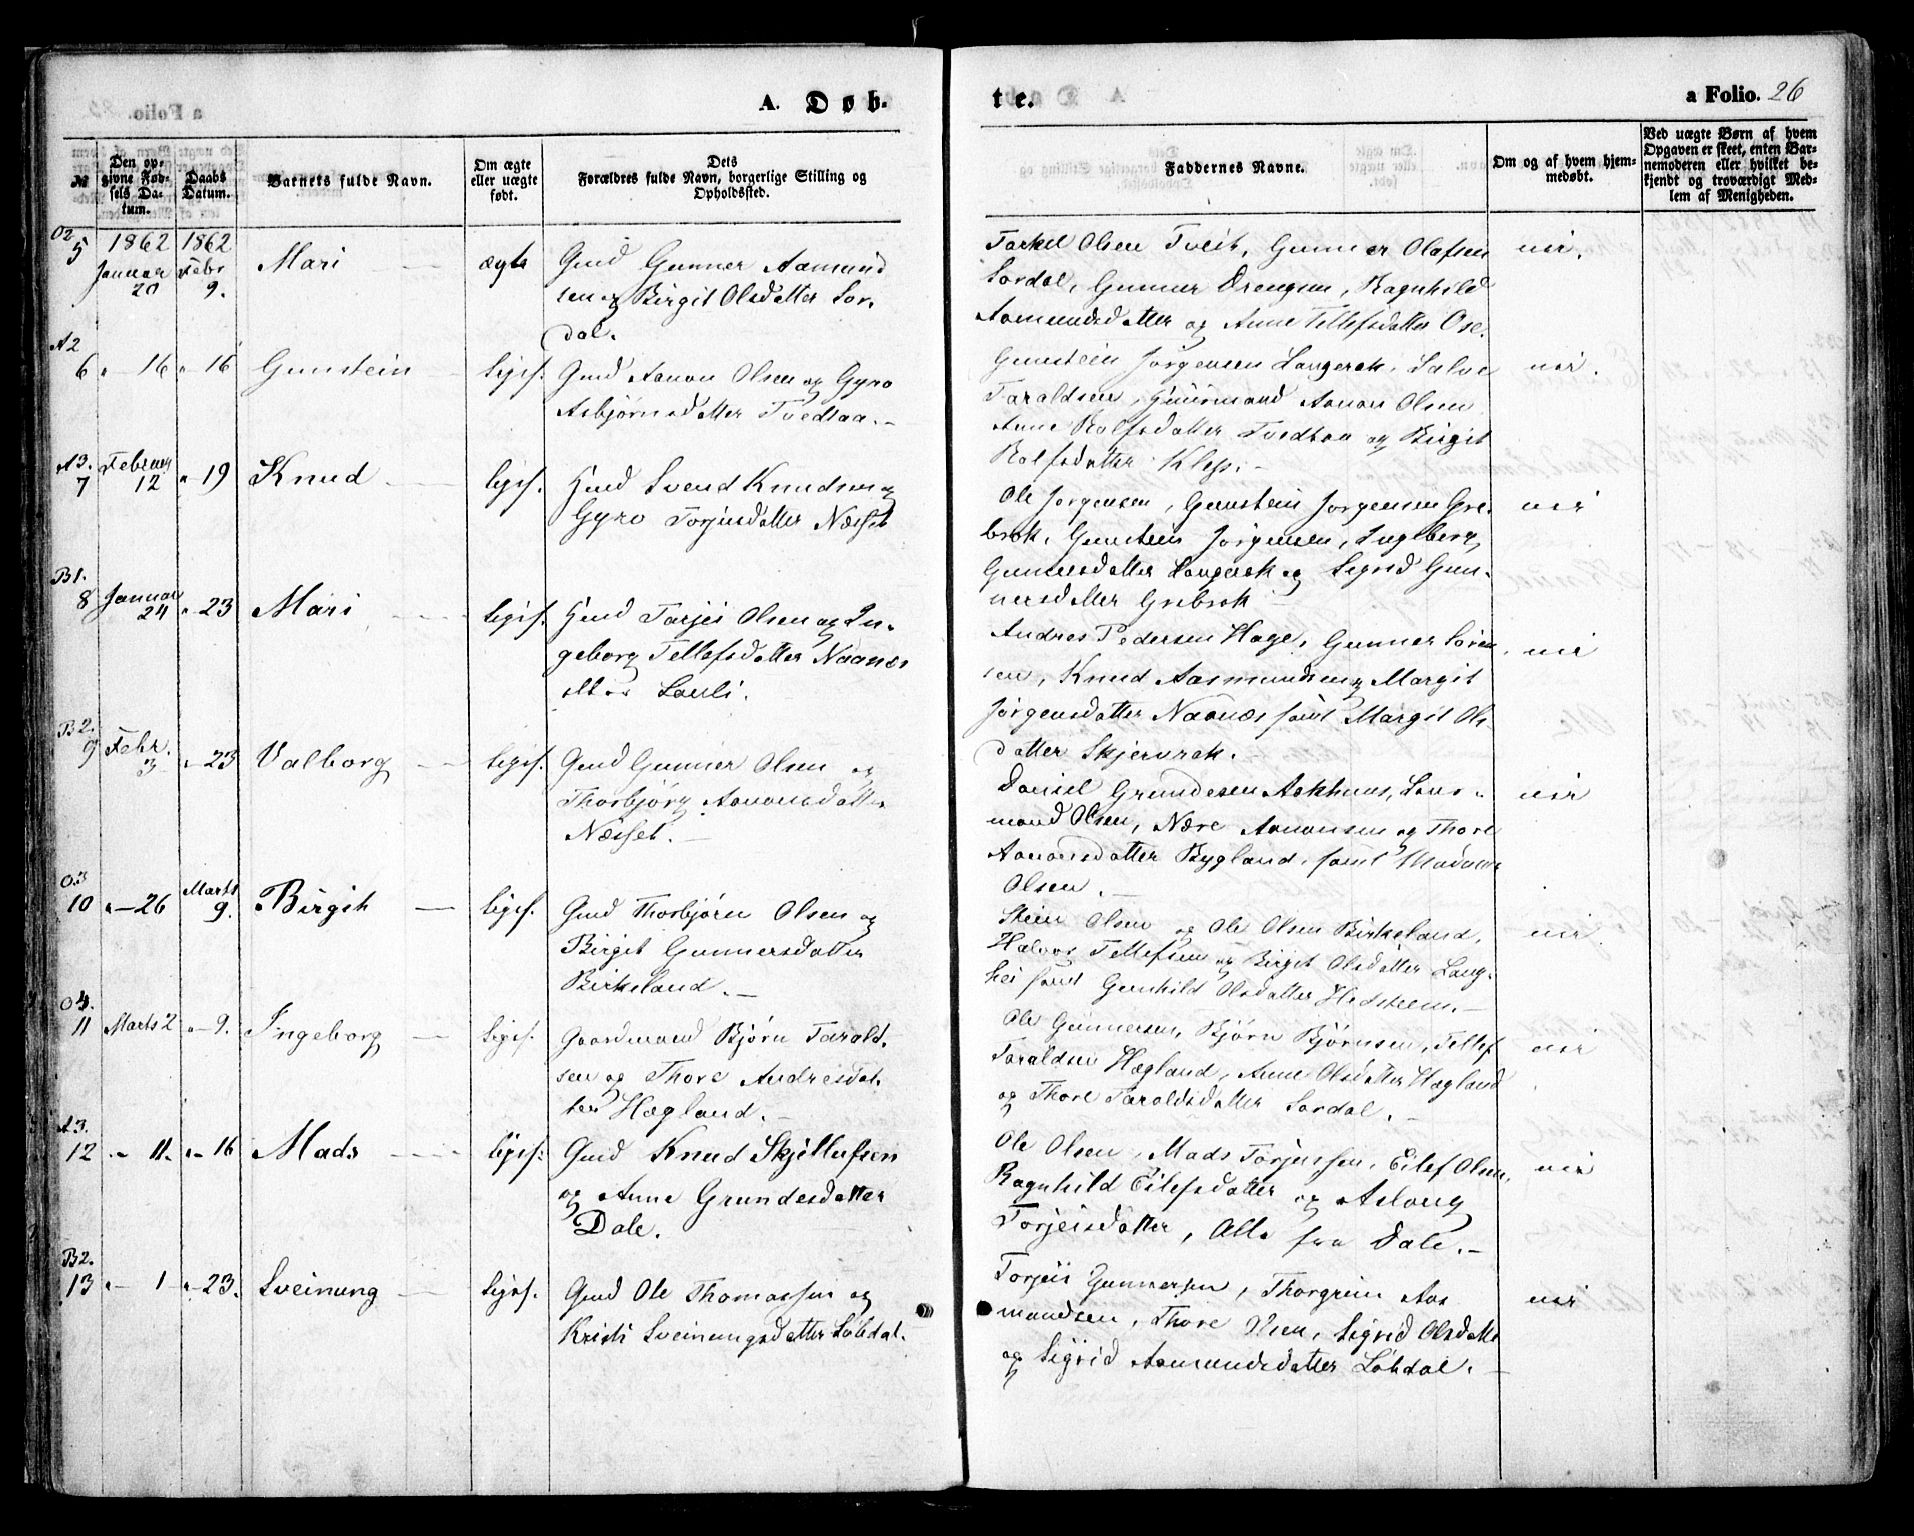 A. Døb-
te.
a Folio. 26
№
Den op-
givne Fød-
sels Da-
tum.
Daabs
Datum.
Barnets fulde Navn.
Om ægte
eller uægte
født.
Dets
Forældres fulde Navn, borgerlige Stilling og
Opholdssted.
Faddernes Navne.
Om og af hvem hjem-
medøbt.
Ved uægte Børn af hvem
Opgaven er skeet, enten Bar-
nemoderen eller hvilket be-
kjendt og troværdigt Med-
lem af Menigheden.
O2 5 1862 Januar 20 1862 Febr 9. Mari — ægte
Gmd Gunner Aamund
sen og Birgit Olsdatter Sor-
dal.
Tarkel Olsen Tveit, Gunner Olafsen
Sordal, Gunner Drengsen, Ragnhild
Aamundsdatter og Anne Tellefsdatter Ose.
nei.
A2 6 " 16 " 16 Gunstein — liges.
Gmd Aanon Olsen og Gyro
Asbjørnsdatter Tvedtaa.—
Gunstein Jørgensen Langerak, Salve
Taraldsen, Huusmand Aanon Olsen
Anne Rolfsdatter Tvedtaa og Birgit
Rolfsdatter Klep.—
nei.
A3. 7 Februar 12 " 19 Knud — liges.
Hmd Svend Knudsen og
Gyro Torjusdatter Næsset
Ole Jørgensen, Gunstein Jørgensen Gre-
brok, Gunstein Jørgensen, Ingeberg
Gunnersdatter Langerak og Sigrid Gun-
nersdatter Grebrok
nei
B1. 8 Januar 24 "-23 Mari — liges.
Hmd Tarjei Olsen og In-
geborg Tellefsdatter Naanes
eller Lauli.
Andres Pedersen Hage, Gunner Søren-
sen, Knud Aasmundsen og Margit
Jørgensdatter Naanæs samt Margit Ols
datter Skjevrak.
nei
B2. 9 Febr. 3 "-23 Valborg — liges.
Gmd Gunner Olsen og
Thorbjørg Aanonsdatter
Næsset.—
Daniel Grundesen Aakhuus, Lau-
mand Olsen, Nære Aanonsen og Thore
Aanonsdatter Bygland, samt Madame
Olsen.—
nei
O.3 10 "-26 Marts 9. Birgit — ligis.
Gmd Thorbjørn Olsen og
Birgit Gunnersdatter
Birkeland.—
Stein Olsen og Ole Olsen Birkeland,
Halvor Tellefsen og Birgit Olsdatter Lang-
hei samt Gunhild Olsdatter Hedstem.—
nei.
O4. 11 Marts 2 "-9. Ingeborg — ligis.
Gaardmand Bjørn Tarald-
sen og Thore Andresdat-
ter Hægland.—
Ole Gunnersen, Bjørn Bjørnsen, Tellef
Taraldsen Hægland, Anne Olsdatter Hægland
og Thore Taraldsdatter Sordal.—
nei
A3. 12 "- 11. "-16 Mads — ligis.
Gmd Knud Skjellufsen
og Anne Grundesdatter
Dale.
Ole Olsen, Mads Torjussen, Eilef Olsen,
Ragnhild Eilefsdatter og Aslaug
Torjeisdatter, Alle fra Dale.—
nei
B2. 13 "- 1 "-23. Sveinung — ligis.
Gmd Ole Thomassen og
Kristi Sveinungsdatter Løbdal.
Torjei Gunnersen, Thorgrim Aas
mundsen, Thore Olsen, Sigrid Olsdatter
og Sigrid Aamundsdatter Løbdal.—
nei